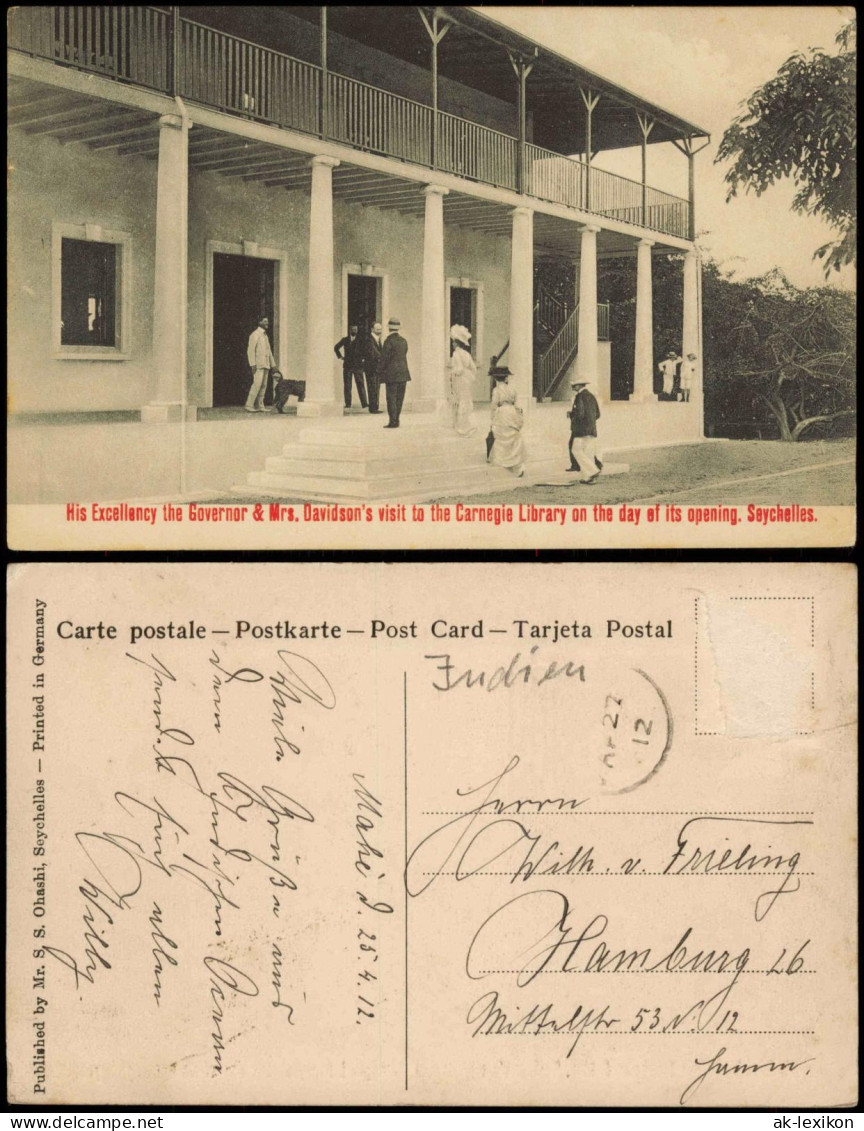 His Excellency the Governor & Mrs. Davidson's visit to the Carnegie Library on the day of its opening. Seychelles.
Carte postale — Postkarte — Post Card — Tarjeta Postal
Published by Mr. S. S. Ohashi, Seychelles — Printed in Germany
Indien
27
12
Mahé d. 25.4.12.
Viele Grüße aus
dem Indischen Ocean
sendet Euch allen
Willy.
Herrn
Wilh. v. Frieling
Hamburg 26
Mittelstr 53 12
Hamm.
ak-lexikon